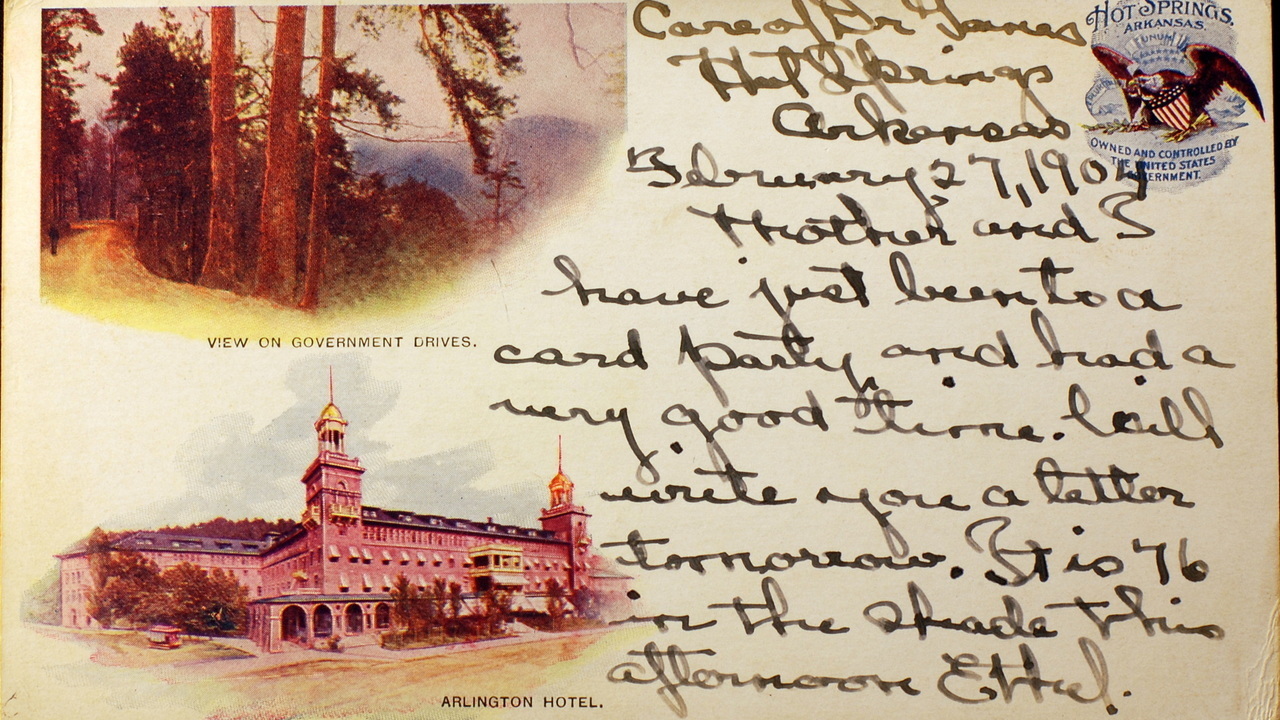 Care of Dr James
Hot Springs
Arkansas
February 27, 1904
Mother and I
have just been to a
card party, and had a
very good time. Will
write you a letter
tomorrow. It is 76
in the shade this
afternoon Ethel.
HOT SPRINGS,
ARKANSAS.
UNUM
OWNED AND CONTROLLED BY
THE UNITED STATES
GOVERNMENT.
VIEW ON GOVERNMENT DRIVES.
ARLINGTON HOTEL.